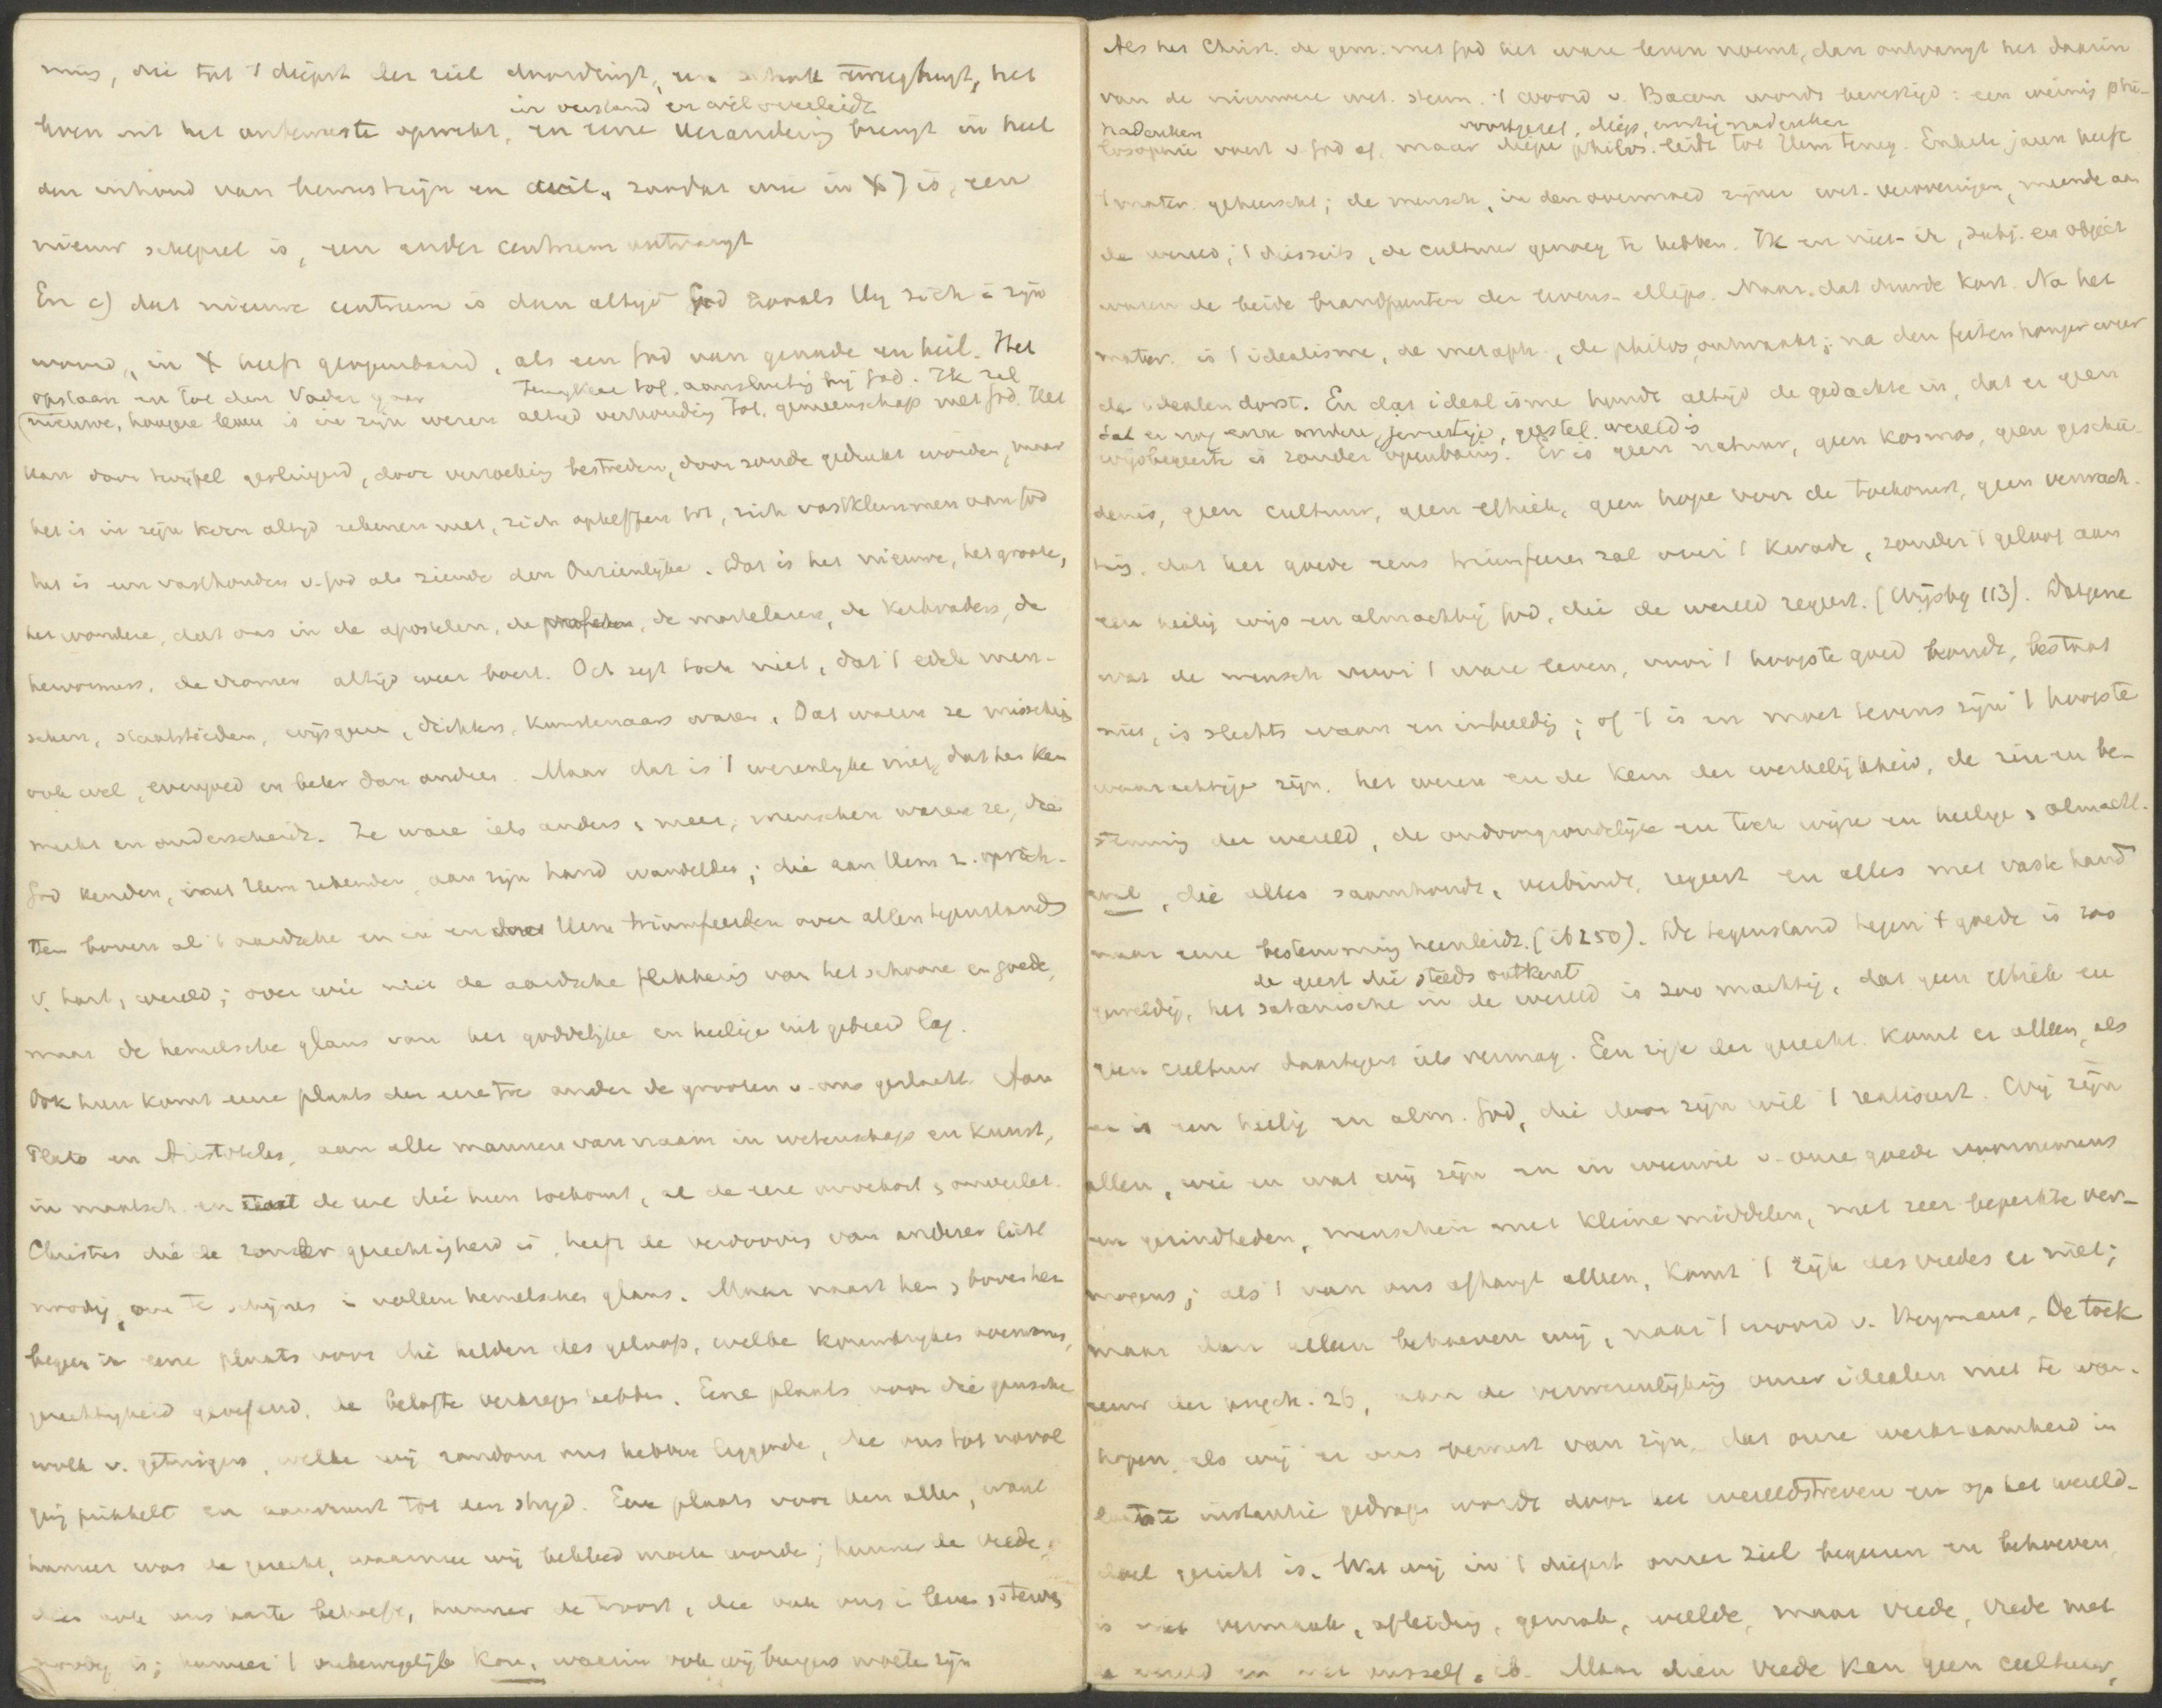 mus, die tot 't diepst der ziel doordringt, een schok teweegbrengt, het
in verstand en wil overleidt
leven uit het onbewuste opwekt, en eene verandering brengt in heel
den inhoud van bewustzijn en wil, zoodat wie in X is, een
nieuw schepsel is, een ander centrum ontvangt
En c) dat nieuwe centrum is dan altijd God zooals Hij zich i zijn
woord, in X heeft geopenbaard, als een God van genade en heil. Het
opstaan en tot den Vader gaan terugkeer tot, aansluiting bij God. Ik zal
nieuwe, hoogere leven is in zijn wezen altijd verhouding tot, gemeenschap met God. Het
kan door twijfel geslingerd, door verzoeking bestreden, door zonde gedrukt worden, maar
het is in zijn kern altijd rekenen met, zich opheffen tot, zich vastklemmen aan God
het is een vasthouden v. God als ziende den Onzienlijke. Dat is het nieuwe, het groote,
het wondere, dat ons in de apostelen, de profeten, de martelaren, de kerkvaders, de
hervormers, de vromen altijd weer boeit. Och zegt toch niet, dat 't edele men-
schen, staatslieden, wijsgeeren, dichters, kunstenaars waren. Dat waren ze misschien
ook wel, evengoed en beter dan anderen. Maar dat is 't wezenlijke niet, dat hen ken
merkt en onderscheidt. Ze ware iets anders, meer, menschen waren ze, die
God kenden, met Hem rekenden, aan zijn hand wandelden; die aan Hem z. oprich-
ten boven al 't aardsche en in en door Hem triumfeerden over allen tegenstand
v. hart, wereld; over wie niet de aardsche flikkering van het schoone en goede,
maar de hemelsche glans van het goddelijke en heilige uitgebreid lag.
Ook hun komt eene plaats der eere toe onder de grooten v. ons geslacht. Aan
Plato en Aristoteles, aan alle mannen van naam in wetenschap en kunst,
in maatsch. en staat de eere die hun toekomt, al de eere onverkort, onverlet.
Christus die de zon der gerechtigheid is, heeft de verdooving van anderer licht
noodig, om te schijnen i vollen hemelschen glans. Maar naast hen, boven hen
begeer ik eene plaats voor die helden des geloofs, welke koninkrijken overwonnen,
gerechtigheid geoefend, de belofte verkregen hebben. Eene plaats voor die gansche
wolk v. getuigen, welke wij rondom ons hebben liggende, die ons tot navol
ging prikkelt en aanvuurt tot den strijd. Eene plaats voor hen allen, want
hunner was de gerecht, waarmee wij bekleed moeten worde; hunner de vrede,
dien ook ons harte behoeft, hunner de troost, die ook ons i leven, sterven
noodig is; hunner 't onbewegelijk Kon., waarin ook wij burgers moeten zijn
Als het Christ. de gem. met God het ware leven noemt, dan ontvangt het daarin
van de nieuwere wet. steun. 't woord v. Bacon wordt bevestigd: een weinig phi-
nadenken voortgezet, diep, ernstig nadenken
losophie voert v. God af, maar diepe philos. leidt tot Hem terug. Enkele jaren heeft
't mater. geheerscht; de mensch, in den overmoed zijner wet. veroveringen, meende aan
de wereld, 't diesseits, de cultuur genoeg te hebben. Ik en niet-ik, subj. en object
waren de beide brandpunten der levens-ellips. Maar dat duurde kort. Na het
mater. is 't idealisme, de metaph., de philos. ontwaakt; na den feitenhonger weer
de idealendorst. En dat idealisme houdt altijd de gedachte in, dat er geen
dat er nog eene andere, jenseitige, geestel. wereld is
wijsbegeerte is zonder openbaring. Er is geen natuur, geen kosmos, geen geschie-
denis, geen cultuur, geen ethiek, geen hope voor de toekomst, geen verwach-
ting, dat het goede eens triumfeeren zal over 't kwade, zonder 't geloof aan
een heilig wijs en almachtig God, die de wereld regeert. (Wijsbeg 113). Datgene
wat de mensch voor 't ware leven, voor 't hoogste goed houdt, bestaat
niet, is slechts waan en inbeelding; of 't is en moet tevens zijn 't hoogste
waarachtige zijn, het wezen en de kern der werkelijkheid, de zin en be-
stemming der wereld, de ondoorgrondelijke en toch wijze en heilige, almacht.
wil, die alles saamhoudt, verbindt, regeert en alles met vaste hand
naar eene bestemming heenleidt. (ib 250). De tegenstand tegen 't goede is zoo
de geest die steeds ontkent
geweldig, het satanische in de wereld is zoo machtig, dat geen ethiek en
geen cultuur daartegen iets vermag. Een rijk der gerecht. komt er alleen, als
er is een heilig en alm. God, die door zijn wil 't realiseert. Wij zijn
allen, wie en wat wij zijn en in weerwil v. onze goede voornemens
en gezindheden, menschen met kleine middelen, met zeer beperkte ver-
mogens; als 't van ons afhangt alleen, komt 't rijk des vredes er niet;
maar dan alleen behoeven wij, naar 't woord v. Heymans, De toek
eeuw der psych. 26, aan de verwezenlijking onzer idealen niet te wan-
hopen, als wij er ons bewust van zijn, dat onze werkzaamheid in
laatste instantie gedragen wordt door het wereldstreven en op het wereld-
doel gericht is. Wat wij in 't diepst onzer ziel begeeren en behoeven,
is niet vermaak, afleiding, gemak, weelde, maar vrede, vrede met
de wereld en met onszelf. ib. Maar dien vrede kan geen cultuur,